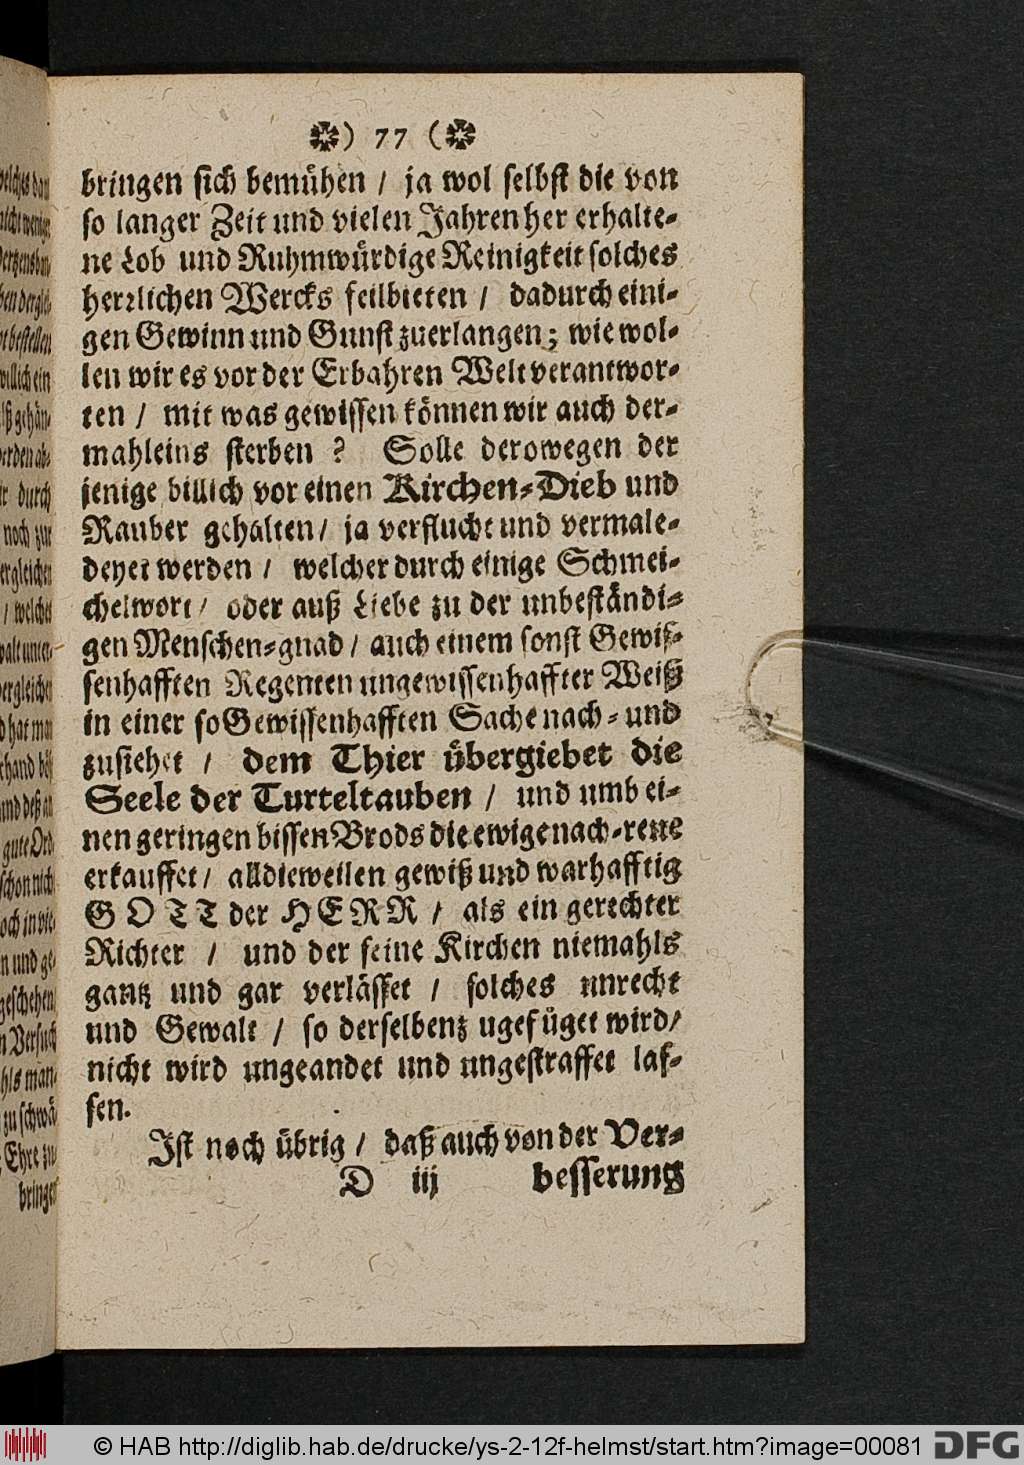 ❉) 77 (❉
bringen sich bemühen / ja wol selbst die von
so langer Zeit und vielen Jahren her erhalte-
ne Lob und Ruhmwürdige Reinigkeit solches
herrlichen Wercks feilbieten / dadurch eini-
gen Gewinn und Gunst zuerlangen; wie wol-
len wir es vor der Erbahren Welt verantwor-
ten / mit was gewissen können wir auch der-
mahleins sterben ? Solle derowegen der
jenige billich vor einen Kirchen-Dieb und
Rauber gehalten / ja verflucht und vermale-
deyet werden / welcher durch einige Schmei-
chelwort / oder auß Liebe zu der unbeständi-
gen Menschen-gnad / auch einem sonst Gewis-
senhafften Regenten ungewissenhaffter Weiß
in einer so Gewissenhafften Sache nach- und
zusiehet / dem Thier übergiebet die
Seele der Turteltauben / und umb ei-
nen geringen bissen Brods die ewige nach-reue
erkauffet / alldieweilen gewiß und warhafftig
GOTT der HERR / als ein gerechter
Richter / und der seine Kirchen niemahls
gantz und gar verlässet / solches unrecht
und Gewalt / so derselbenz ugefüget wird /
nicht wird ungeandet und ungestraffet las-
sen.
Ist noch übrig / daß auch von der Ver-
D iij besserung
© HAB http://diglib.hab.de/drucke/ys-2-12f-helmst/start.htm?image=00081 DFG